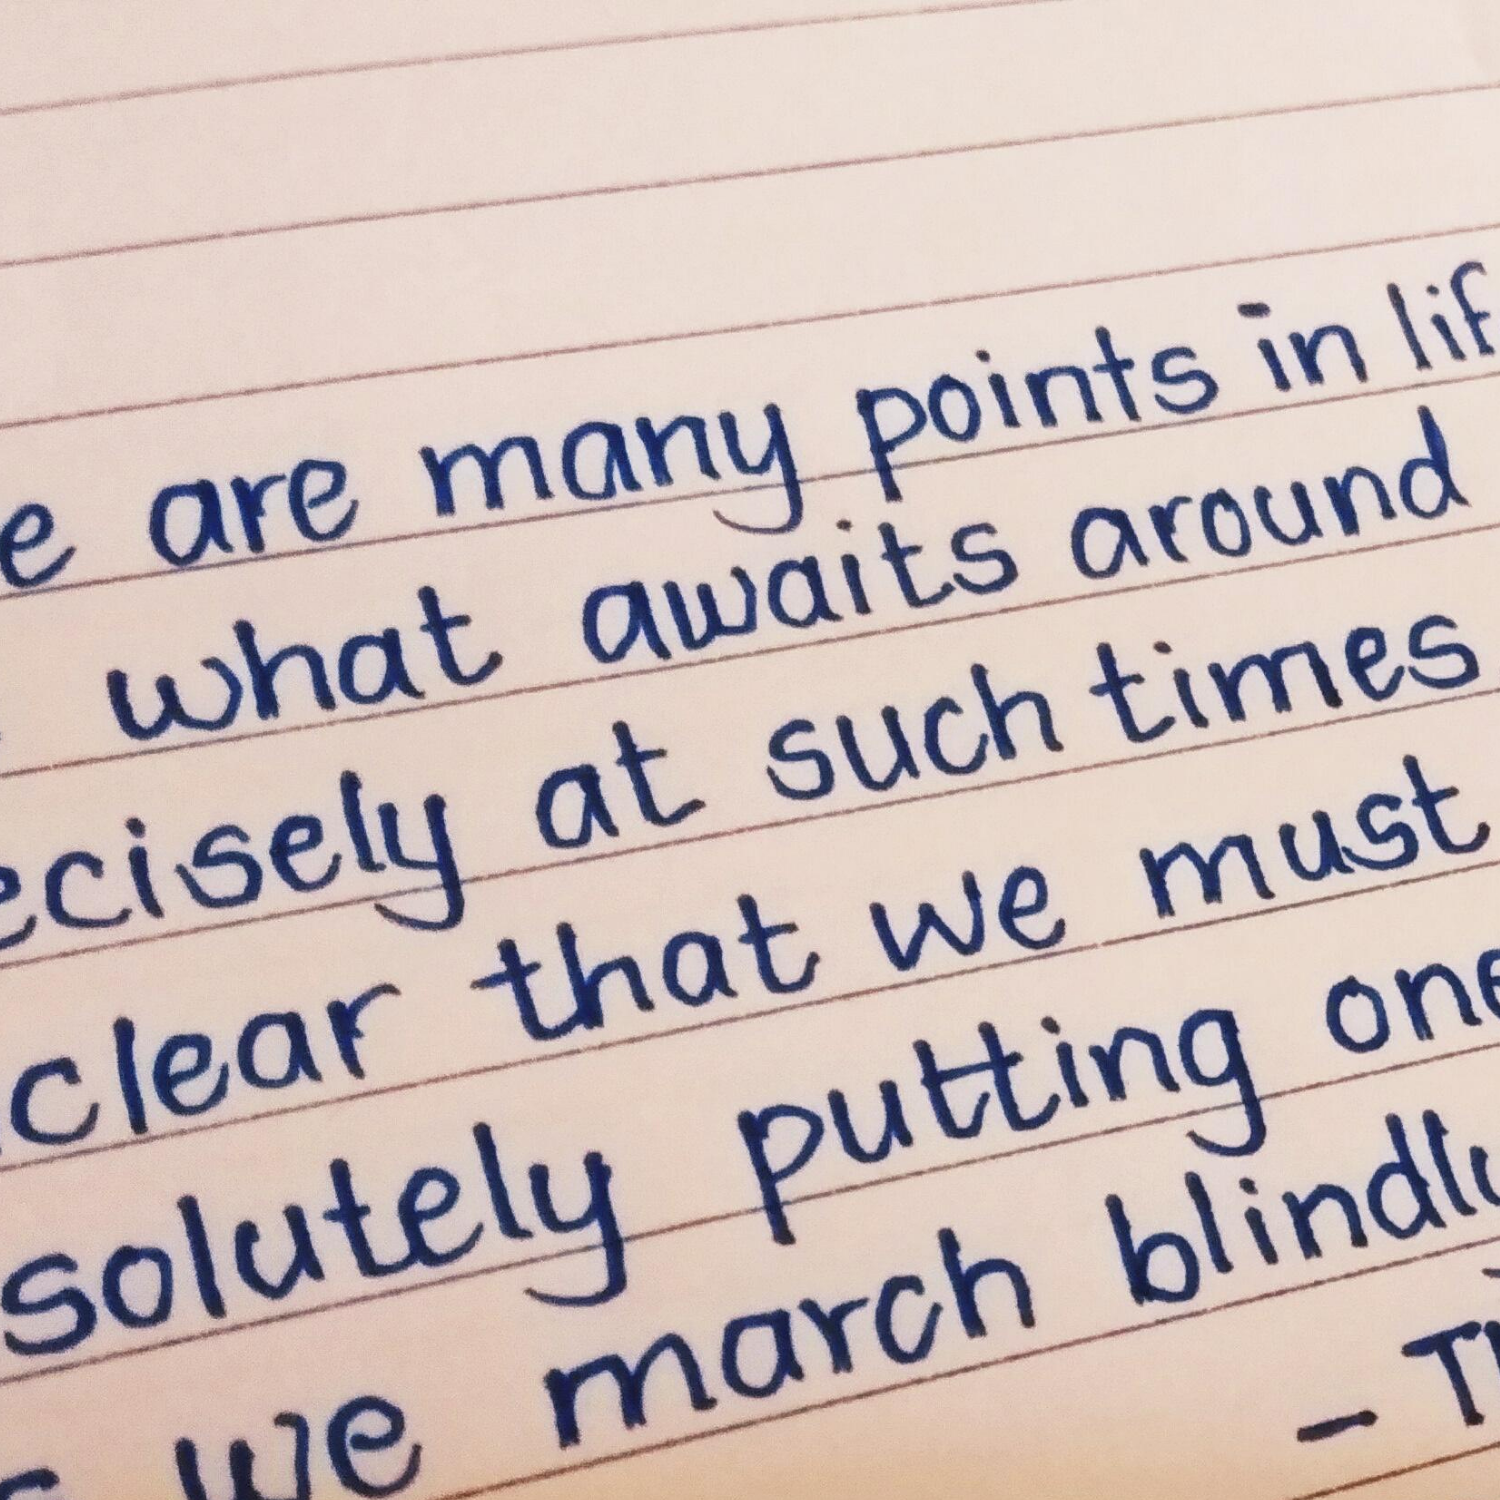 e are many points in lif
what awaits around
ecisely at such times
clear that we must
solutely putting one
s we march blindly
- T